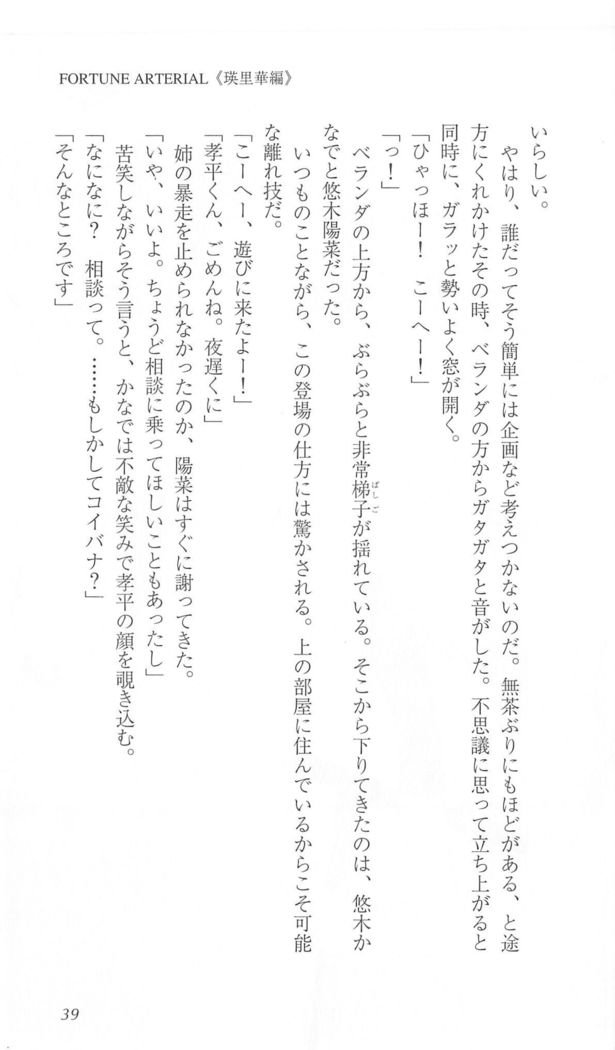 FORTUNE ARTERIAL《瑛里華編》
いらしい。
　やはり、誰だってそう簡単には企画など考えつかないのだ。無茶ぶりにもほどがある、と途
方にくれかけたその時、ベランダの方からガタガタと音がした。不思議に思って立ち上がると
同時に、ガラッと勢いよく窓が開く。
「ひゃっほー！　こーへー！」
「っ！」
　ベランダの上方から、ぶらぶらと非常梯子ばしごが揺れている。そこから下りてきたのは、悠木か
なでと悠木陽菜だった。
　いつものことながら、この登場の仕方には驚かされる。上の部屋に住んでいるからこそ可能
な離れ技だ。
「こーへー、遊びに来たよー！」
「孝平くん、ごめんね。夜遅くに」
　姉の暴走を止められなかったのか、陽菜はすぐに謝ってきた。
「いや、いいよ。ちょうど相談に乗ってほしいこともあったし」
　苦笑しながらそう言うと、かなでは不敵な笑みで孝平の顔を覗き込む。
「なになに？　相談って。……もしかしてコイバナ？」
「そんなところです」
39